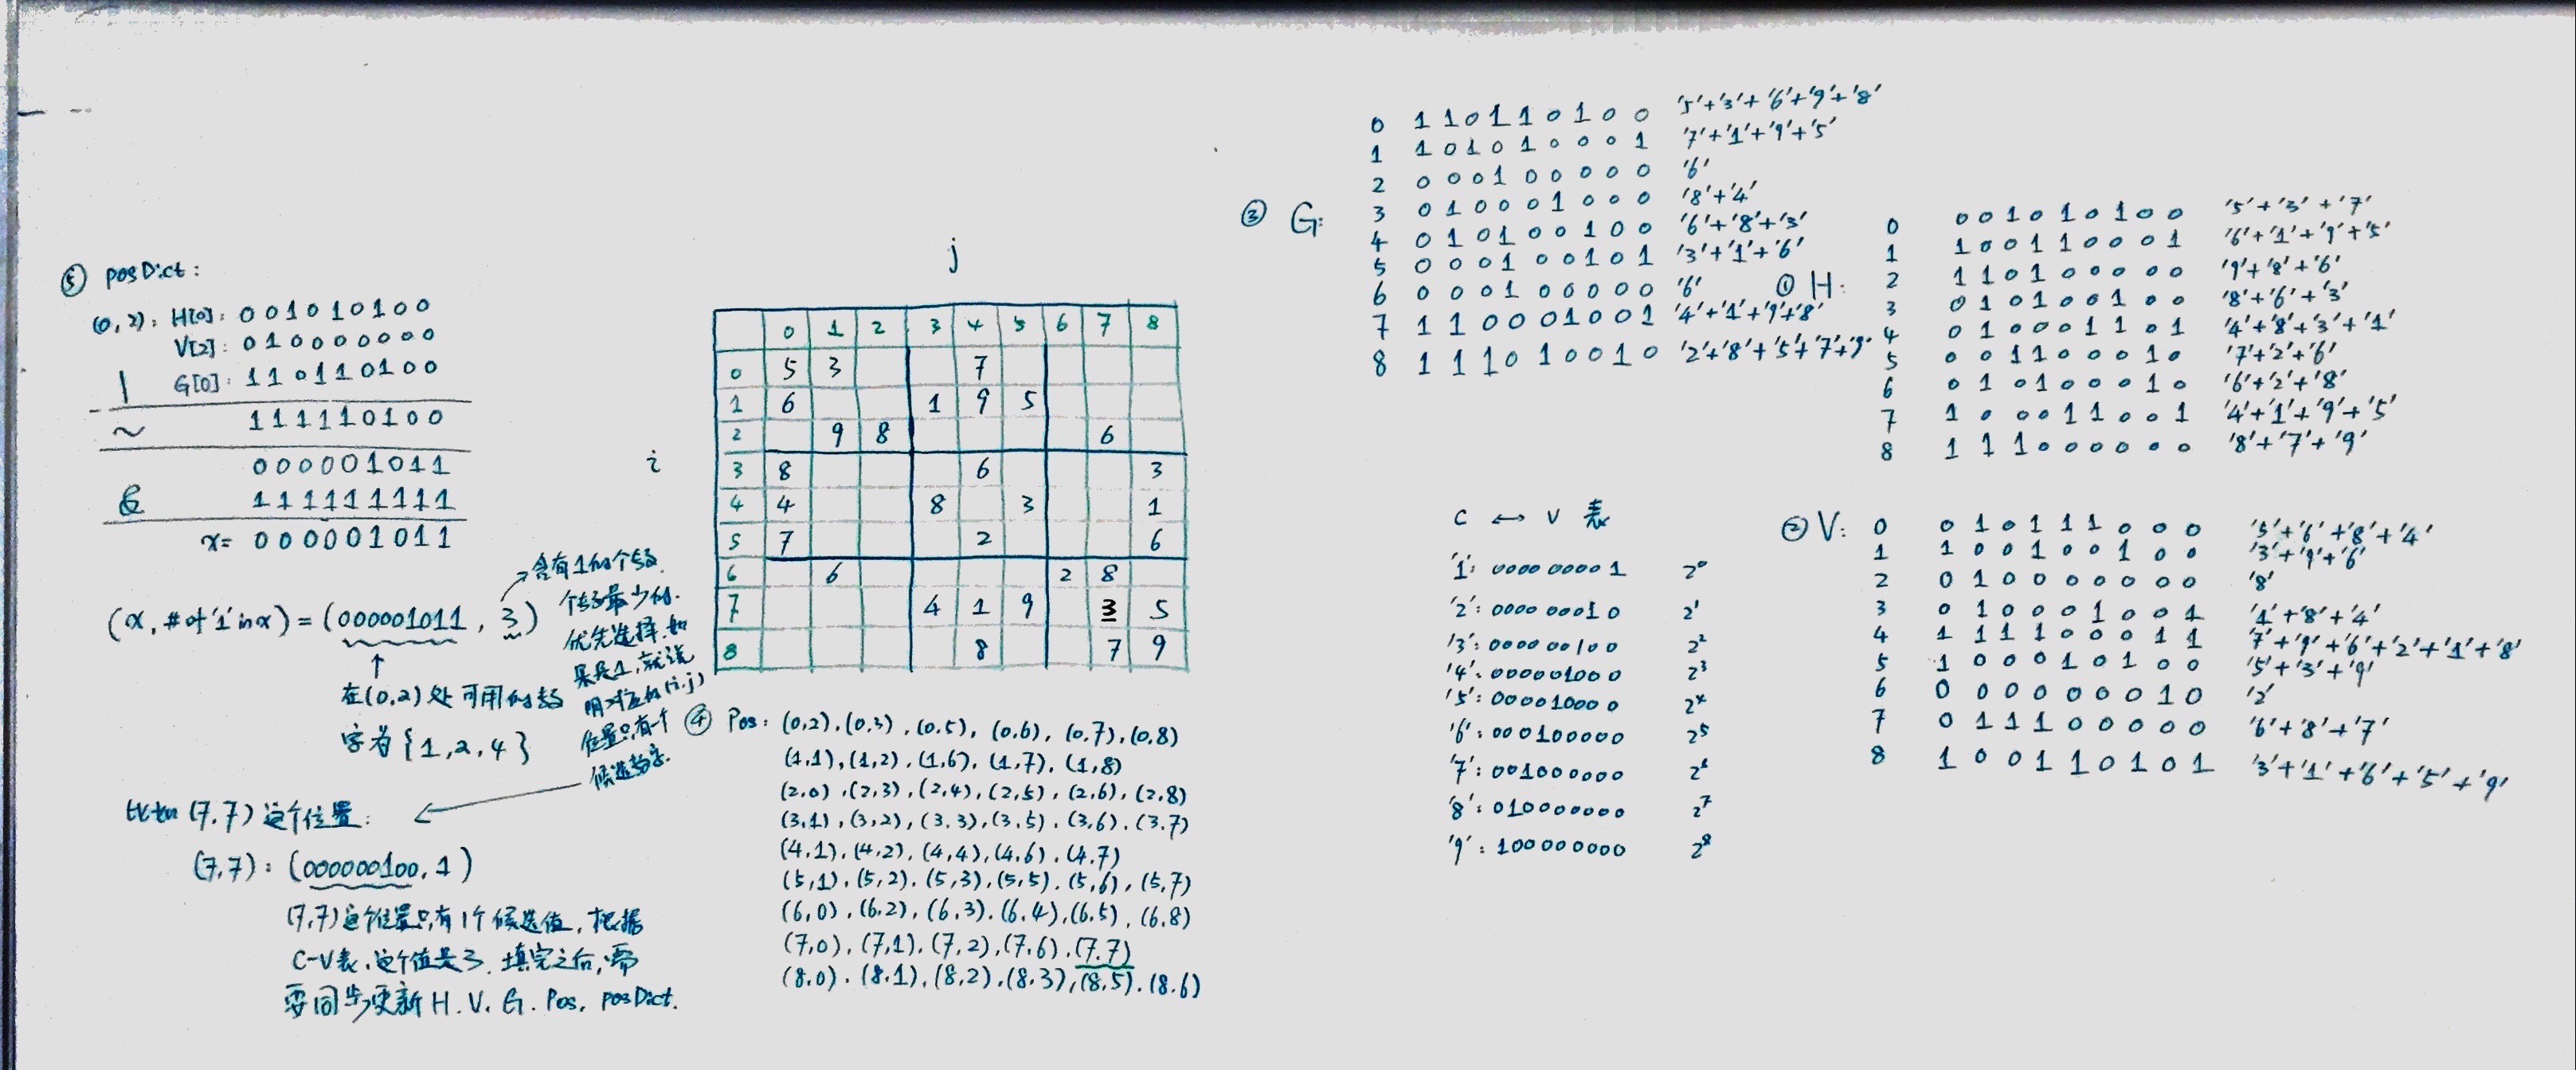 ⑤ posDict:
(0,2): H[0]: 001010100
V[2]: 010000000
| G[0]: 110110100
~ 111110100
000001011
& 111111111
x= 000001011
(x, #of'1'inx) = (000001011, 3)
↑
在(0,2)处可用的数
字为{1,2,4}
含有1的个数.
个数最少的.
优先选择.如
果是1,就说
明对应的(i,j)
位置只有一个
候选数字.
比如(7,7)这个位置:
(7,7): (000000100, 1)
(7,7)这个位置只有1个候选值,根据
C-V表,这个值是3. 填完之后,需
要同步更新H.V.G.Pos, posDict.
j
0 1 2 3 4 5 6 7 8
0 5 3 7
1 6 1 9 5
2 9 8 6
i
3 8 6 3
4 4 8 3 1
5 7 2 6
6 6 2 8
7 4 1 9 3 5
8 8 7 9
④ Pos: (0,2),(0,3),(0,5),(0,6),(0,7),(0,8)
(1,1),(1,2),(1,6),(1,7),(1,8)
(2,0),(2,3),(2,4),(2,5),(2,6),(2,8)
(3,1),(3,2),(3,3),(3,5),(3,6),(3,7)
(4,1),(4,2),(4,4),(4,6),(4,7)
(5,1),(5,2),(5,3),(5,5),(5,6),(5,7)
(6,0),(6,2),(6,3),(6,4),(6,5),(6,8)
(7,0),(7,1),(7,2),(7,6),(7,7)
(8,0),(8,1),(8,2),(8,3),(8,5),(8,6)
③ G:
0 110110100 '5'+'3'+'6'+'9'+'8'
1 101010001 '7'+'1'+'9'+'5'
2 000100000 '6'
3 010001000 '8'+'4'
4 010100100 '6'+'8'+'3'
5 000100101 '3'+'1'+'6'
6 000100000 '6'
7 110001001 '4'+'1'+'9'+'8'
8 111010010 '2'+'8'+'5'+'7'+'9'
① H:
0 001010100 '5'+'3'+'7'
1 100110001 '6'+'1'+'9'+'5'
2 110100000 '9'+'8'+'6'
3 010100100 '8'+'6'+'3'
4 010001101 '4'+'8'+'3'+'1'
5 001100010 '7'+'2'+'6'
6 010100010 '6'+'2'+'8'
7 100011001 '4'+'1'+'9'+'5'
8 111000000 '8'+'7'+'9'
C ↔ V 表
'1': 000000001 2⁰
'2': 000000010 2¹
'3': 000000100 2²
'4': 000001000 2³
'5': 000010000 2⁴
'6': 000100000 2⁵
'7': 001000000 2⁶
'8': 010000000 2⁷
'9': 100000000 2⁸
② V:
0 010111000 '5'+'6'+'8'+'4'
1 100100100 '3'+'9'+'6'
2 010000000 '8'
3 010001001 '1'+'8'+'4'
4 111100011 '7'+'9'+'6'+'2'+'1'+'8'
5 100010100 '5'+'3'+'9'
6 000000010 '2'
7 011100000 '6'+'8'+'7'
8 100110101 '3'+'1'+'6'+'5'+'9'